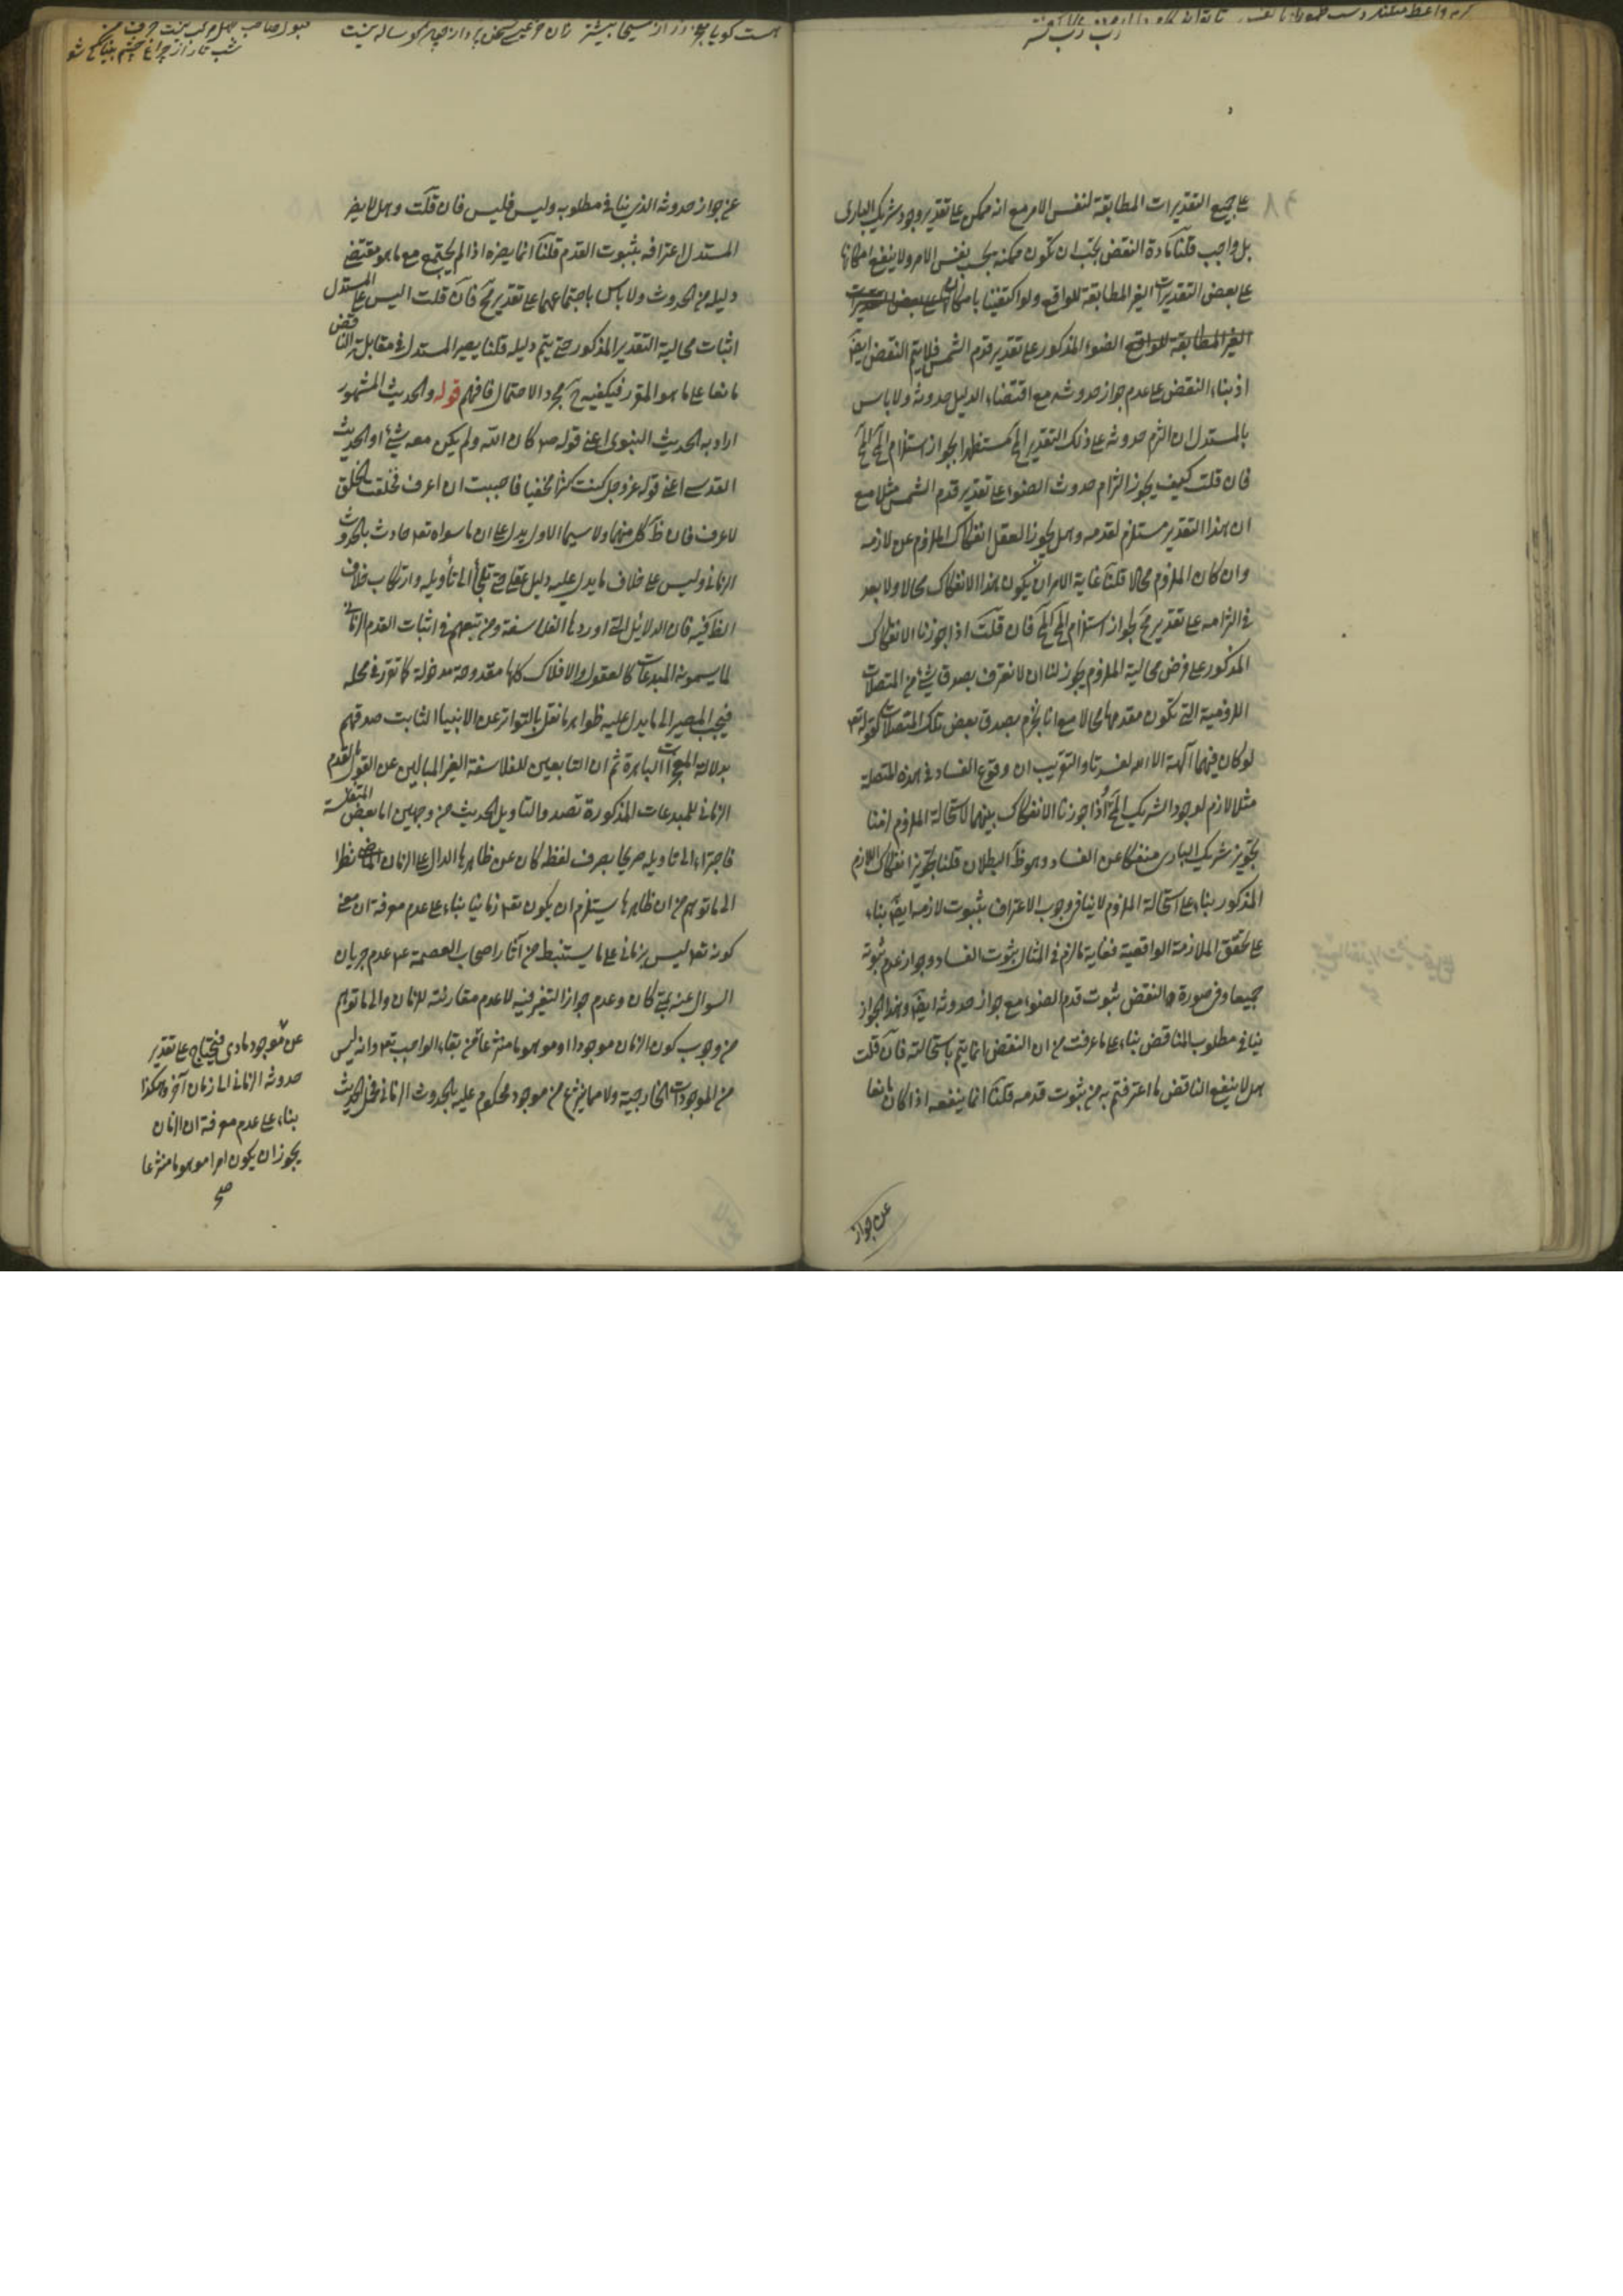 على جميع التقديرات المطابقة لنفس الامر مع انه ممكن على تقدير وجود شريك البارى
بل واجب قلنا مادة النقض يجب ان تكون ممكنة بحسب نفس الامر ولا ينفع امكانها
على بعض التقديرات الغير المطابقة للواقع ولو اكتفينا بامكانها على بعض التقديرات
الغير المطابقة للواقع الضوء المذكور على تقدير قدم الشمس فلا يتم النقض ايضا
اذ بناء النقض على عدم جواز حدوثه مع اقتضاء الدليل حدوثه ولا باس
بالمستدل ان التزم حدوثه على ذلك التقدير المح مستظهرا بجواز استلزام المح المح
فان قلت كيف يجوز التزام حدوث الضوء على تقدير قدم الشمس مثلا مع
ان هذا التقدير مستلزم لقدمه وهل يجوز العقل انفكاك الملزوم عن لازمه
وان كان الملزوم محالا قلنا غاية الامر ان يكون هذا الانفكاك محالا ولا بعد
فى التزامه على تقدير مح لجواز استلزام المح المح فان قلت اذا جوزنا الانفكاك
المذكور على فرض محالية الملزوم يجوز لنا ان لا نعترف بصدق شئ من المتصلات
اللزومية التى تكون مقدمها محالا مع انا نجزم بصدق بعض تلك المتصلات كقوله تعه
لو كان فيهما آلهة الا الله لفسدتا والتقريب ان وقوع الفساد فى هذه المتصلة
مثلا لازم لوجود الشريك المح فاذا جوزنا الانفكاك بينهما لاستحالة الملزوم لزمنا
تجويز شريك البارى منفكا عن الفساد وهو ظ البطلان قلنا تجويز انفكاك اللازم
المذكور بناء على استحالة الملزوم لا ينافى وجوب الاعتراف بثبوت لازمه ايض بناء
على تحقق الملازمة الواقعية فغاية ما لزم فى المثال ثبوت الفساد وجواز عدم ثبوته
جميعا وفى صورة النقض ثبوت قدم الضوء مع جواز حدوثه ايض وهذا الجواز
ينافى مطلوب الناقض بناء على ما عرفت من ان النقض انما يتم باستحالته فان قلت
هل لا ينفع الناقض ما اعترفتم به من ثبوت قدمه قلنا انما ينفعه اذا كان مانعا
عن جواز
عن جواز حدوثه الذى ينافى مطلوبه وليس فليس فان قلت وهل لا يضر
المستدل اعترافه بثبوت القدم قلنا انما يضره اذا لم يجتمع مع ما هو مقتضى
دليله من الحدوث ولا باس باجتماعهما على تقدير مح فان قلت اليس على المستدل
اثبات محالية التقدير المذكور حتى يتم دليله قلنا يصير المستدل فى مقابلة الناقض
مانعا على ما هو المقرر فيكفيه ح مجرد الاحتمال فافهم قوله والحديث المشهور
اراد به الحديث النبوى اعنى قوله ص كان الله ولم يكن معه شئ او الحديث
القدسى اعنى قوله عز وجل كنت كنزا مخفيا فاحببت ان اعرف فخلقت الخلق
لاعرف فان ظ كل منهما ولا سيما الاول يدل على ان ما سواه تعه حادث بالحدوث
الزمانى وليس على خلاف ما يدل عليه دليل عقلى حتى نلجأ الى تأويله وارتكاب خلاف
الظ فيه فان الدلائل التى اوردها الفلاسفة ومن تبعهم فى اثبات القدم الزمانى
لما يسمونه المبدعات كالعقول والافلاك كلها مقدوحة مدخولة كما تقرر فى محله
فيجب المصير الى ما يدل عليه ظواهر ما نقل بالتواتر عن الانبياء الثابت صدقهم
بدلالة المعجزات الباهرة ثم ان التابعين للفلاسفة الغير المبالين عن القول بالقدم
الزمانى للمبدعات المذكورة تصدوا لتاويل الحديث من وجهين اما بعض المتفلسفة
فاجتراء الى تاويله صريحا بصرف لفظه كان عن ظاهرها الدال على الزمان الماضى نظرا
الى ما توهم من ان ظاهرها يستلزم ان يكون تعه زمانيا بناء على عدم معرفة ان معنى
كونه تعه ليس بزمانى على ما يستنبط من آثار اصحاب العصمة عه عدم جريان
السوال عنه بمتى كان وعدم جواز التغير فيه لا عدم مقارنته للزمان والى ما توهم
من وجوب كون الزمان موجودا او موهوما منتزعا من بقاء الواجب تعه وانه ليس
من الموجودات الخارجية ولا مما ينتزع من موجود محكوم عليه بالحدوث الزمانى فحمل الحديث
عن موجود مادى فيحتاج على تقدير
حدوثه الزمانى الى زمان آخر وهكذا
بناء على عدم معرفة ان الزمان
يجوز ان يكون امرا موهوما منتزعا
صح